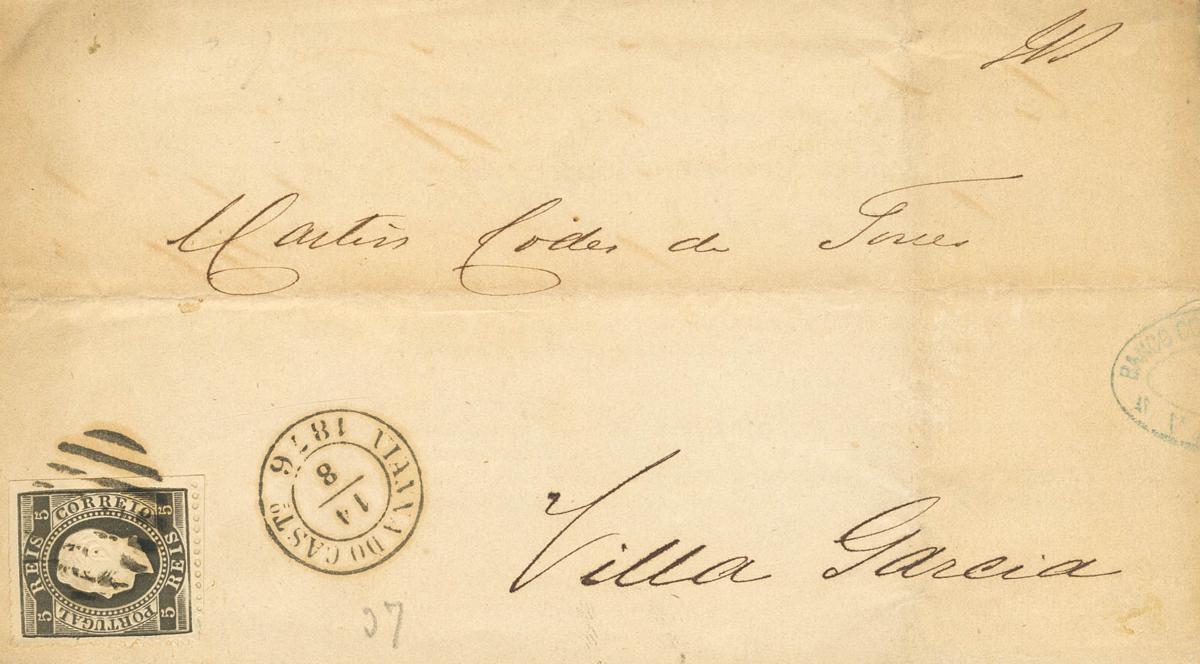 Martin Codes de Torres
BANCO
VIANNA DO CASTO
1876
14/8
Villa Garcia
CORREIO
5 REIS 5
5 REIS 5
PORTUGAL
37